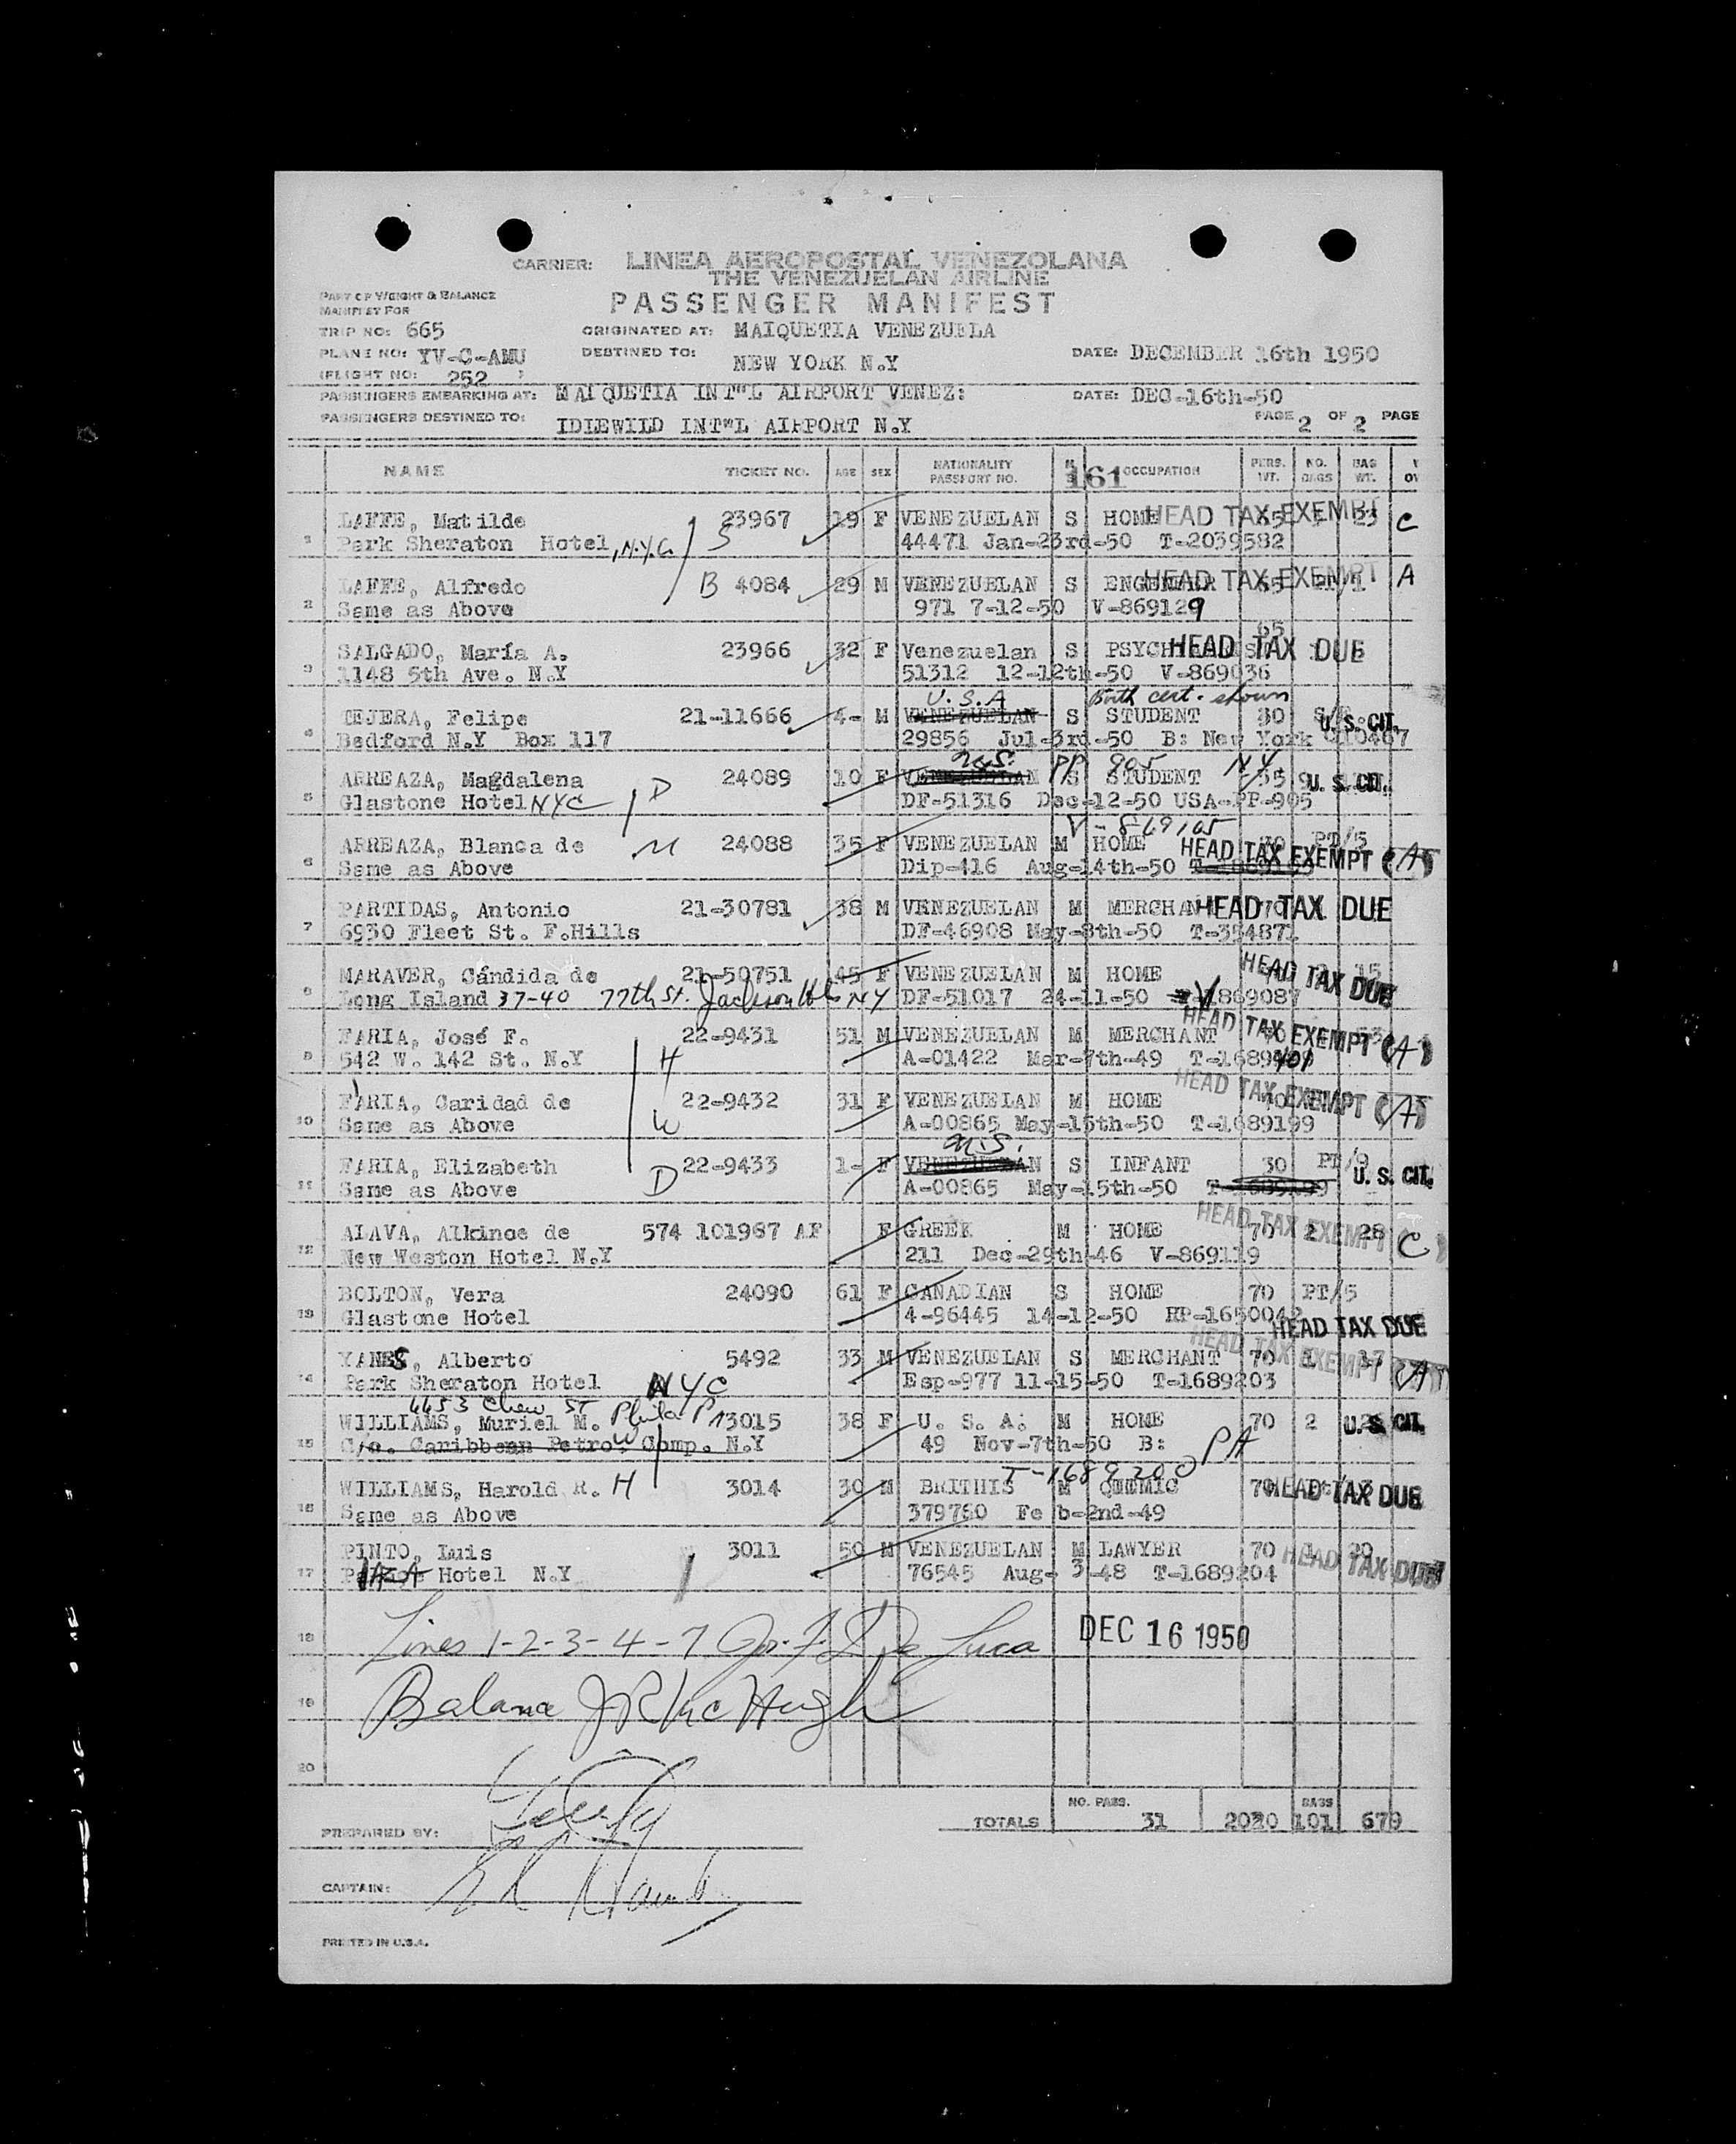 CARRIER: LINEA AEROPOSTAL VENEZOLANA
THE VENEZUELAN AIRLINE
PART OF WEIGHT & BALANCE
MANIFEST FOR
PASSENGER MANIFEST
TRIP NO: 665 ORIGINATED AT: MAIQUETIA VENEZUELA
PLANE NO: YV-C-AMU DESTINED TO: NEW YORK N.Y DATE: DECEMBER 16th 1950
(FLIGHT NO: 252 )
PASSENGERS EMBARKING AT: MAIQUETIA INT"L AIRPORT VENEZ: DATE: DEC-16th-50
PASSENGERS DESTINED TO: IDLEWILD INT"L AIRPORT N.Y PAGE 2 OF 2 PAGE
NAME TICKET NO. AGE SEX NATIONALITY PASSPORT NO. 161 OCCUPATION PERS. WT. NO. BAGS BAG WT.
LAFFE, Matilde 23967 19 F VENEZUELAN S HOME HEAD TAX EXEMPT 23 C
1 Park Sheraton Hotel, N.Y.C. S 44471 Jan-23rd-50 T-2039582
LAFFE, Alfredo B 4084 29 M VENEZUELAN S ENGENEER HEAD TAX EXEMPT A
2 Same as Above 971 7-12-50 V-869129
65
SALGADO, María A. 23966 32 F Venezuelan S HEAD TAX DUE
3 1148 5th Ave. N.Y 51312 12-12th-50 V-869036
U.S.A Birth cert. shown
TEJERA, Felipe 21-11666 4- M VENEZUELAN S STUDENT 30 U.S. CIT.
4 Bedford N.Y Box 117 29856 Jul-3rd-50 B: New York
U.S. PP 905 N.Y.
ARREAZA, Magdalena 24089 10 F VENEZUELAN S STUDENT 35 U.S. CIT.
5 Glastone Hotel NYC D DF-51316 Dec-12-50 USA-PP-905
V-869165
ARREAZA, Blanca de M 24088 35 F VENEZUELAN M HOME PT/5 HEAD TAX EXEMPT (A)
6 Same as Above Dip-416 Aug-14th-50
PARTIDAS, Antonio 21-30781 38 M VENEZUELAN M MERCHANT 70 HEAD TAX DUE
7 6930 Fleet St. F.Hills DF-46908 May-8th-50 T-354871
MARAVER, Cándida de 21-50751 45 F VENEZUELAN M HOME 15 HEAD TAX DUE
8 Long Island 37-40 77th St. Jackson Hts NY DF-51017 24-11-50 V-1869087
FARIA, José F. 22-9431 51 M VENEZUELAN M MERCHANT HEAD TAX EXEMPT (A)
9 542 W. 142 St. N.Y H A-01422 Mar-7th-49
FARIA, Caridad de 22-9432 31 F VENEZUELAN M HOME 70 HEAD TAX EXEMPT (A)
10 Same as Above W A-00865 May-15th-50 T-1689199
U.S.
FARIA, Elizabeth 22-9433 1- F VENEZUELAN S INFANT 30 PT/9 U.S. CIT.
11 Same as Above D A-00865 May-15th-50 T-1689199
ALAVA, Alkinoe de 574 101987 AF F GREEK M HOME 70 2 28 HEAD TAX EXEMPT C
12 New Weston Hotel N.Y 211 Dec-29th-46 V-869119
BOLTON, Vera 24090 61 F CANADIAN S HOME 70 PT/5
13 Glastone Hotel 4-96445 14-12-50 RP-1650042 HEAD TAX DUE
YANES, Alberto 5492 33 M VENEZUELAN S MERCHANT 70 1 17 HEAD TAX EXEMPT (A)
14 Park Sheraton Hotel NYC Esp-977 11-15-50 T-1689203
4453 Chew ST Phila PA
WILLIAMS, Muriel M. 3015 38 F U. S. A: M HOME 70 2 U.S. CIT.
15 C/o. Caribbean Petro. Comp. N.Y W 49 Nov-7th-50 B: PA
T-1689200
WILLIAMS, Harold R. H 3014 30 M BRITHIS M 70 HEAD TAX DUE
16 Same as Above 379760 Feb-2nd-49
PINTO, Luis 3011 50 M VENEZUELAN M LAWYER 70 1 20 HEAD TAX DUE
17 Hotel N.Y 76545 Aug- 3-48 T-1689204
18 Lines 1-2-3-4-7 De Luca DEC 16 1950
19 Balance J R McHugh
20
TOTALS NO. PASS. 31 2020 BAGS 101 679
PREPARED BY:
CAPTAIN:
PRINTED IN U.S.A.